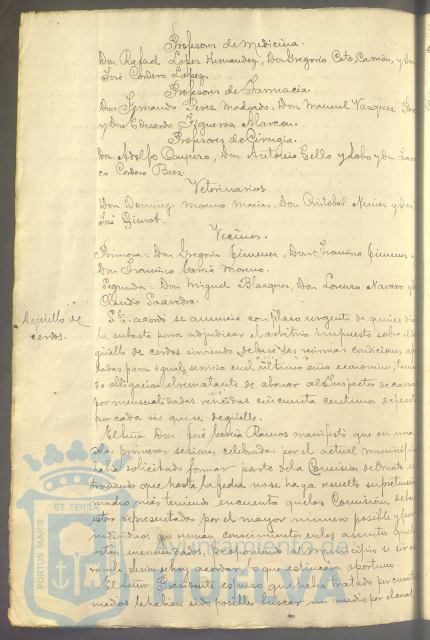 Profesores de Medicina.
Don Rafael Lopez Hernandez, Don Gregorio Cato Carrión, y Don
José Cordero Lopez.
Profesores de Farmacia.
Don Fernando Perez Machado, Don Manuel Vazquez
y Don Eduardo Figueroa Alarcon.
Profesores de Cirugia.
Don Adolfo Quintero, Don Antonio Tello y Lobo y Don
Cordero Baez.
Veterinarios
Don Domingo Moreno Macias, Don Cristobal Nuñez y Don
José
Vecinos.
Primera: Don Gregorio Gimenez, Don Francisco Gimenez
Don Francisco Garcia Moreno.
Segunda: Don Miguel Blazquez, Don Lorenzo Navarro y
Claudio Saavedra.
Degüello de
cerdos.
S. E. acordó se anuncie con plazo urgente de quince dias
la subasta para adjudicar el arbitrio impuesto sobre el
güello de cerdos sirviendo de base las mismas condiciones
badas para igual servicio en el último año economico,
do obligacion el rematante de abonar al Inspector de carnes
por mensualidades vencidas cincuenta centimos de peseta
por cada res que se degüelle.
El Señor Don José Garcia Ramos manifestó que en una
de las primeras sesiones celebradas por el actual municipio
habia solicitado formar parte de la Comision de Ornato
trañando que hasta la fecha no se haya resuelto su peticion
mucho mas teniendo en cuenta que las Comisiones deben
estar representadas por el mayor numero posible y por
individuos que reunan conocimientos en los asuntos que les
estan encomendados,
sesion de hoy acordar lo que estimara oportuno.
El Señor Presidente expuso que habia tratado por cuantos
medios le habian sido posibles buscar un medio por el cual
PORTUS MARIS ET TERRÆ
Ayuntamiento de
HUELVA